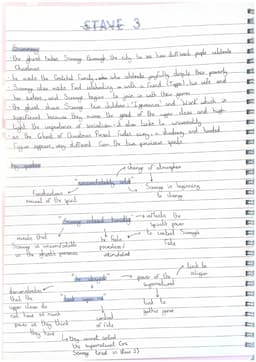 STAVE 3
Summary
- the ghost takes Scrooge through the city to see how different people celebrate
Christmas
- he meets the Cratchit family who celebrate joyfully despite their poverty
- Scrooge also sees Fred celebrating with a friend (Topper), his wife and
her sisters, and Scrooge begins to join in with their games
- the ghost shows Scrooge two children, 'Ignorance' and 'Want' which is
significant because they
light the importance of
- as the Ghost of Christmas Present fades away, a shadowy and hooded
figure appears, very different from the two previous spirits
Key quotes
change of atmosphere
Foreshadows
arrival of the spirit
Scrooge is beginning
to change
"Scrooge entered timidly"
reflects the
spirit's power
to control Scrooge's
fate
reveals that
Scrooge is uncomfortable
in the ghost's presence
he feels
powerless /
intimidated
link to
religion
power of the
supernatural
demonstrates
that the
upper class do
not have as much
power as they think
they have
"look upon me"
control
of fate
link to
gothic genre
they cannot control
the supernatural (as
Scrooge tried in Stave 1)